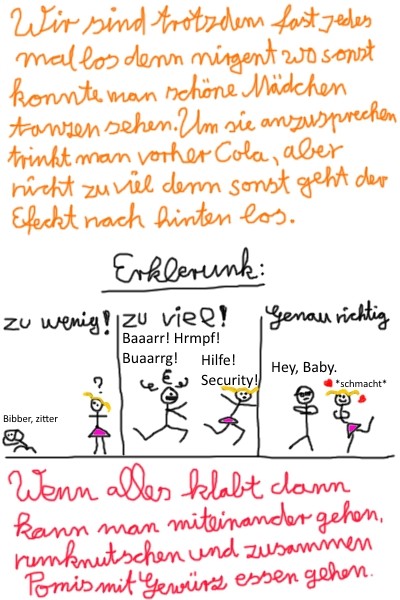 Wir sind trotzdem fast jedes
mal los denn nirgent wo sonst
konnte man schöne Mädchen
tanzen sehen. Um sie anzusprechen
trinkt man vorher Cola, aber
nicht zu viel denn sonst geht der
Efeckt nach hinten los.
Erklerunk:
zu wenig!
?
Bibber, zitter
zu viel!
Baaarr! Hrmpf!
Buaarrg!
Hilfe!
Security!
Genau richtig
Hey, Baby.
*schmacht*
Wenn alles klabt dann
kann man miteinander gehen,
rumknutschen und zusammen
Pomis mit Gewürz essen gehen.